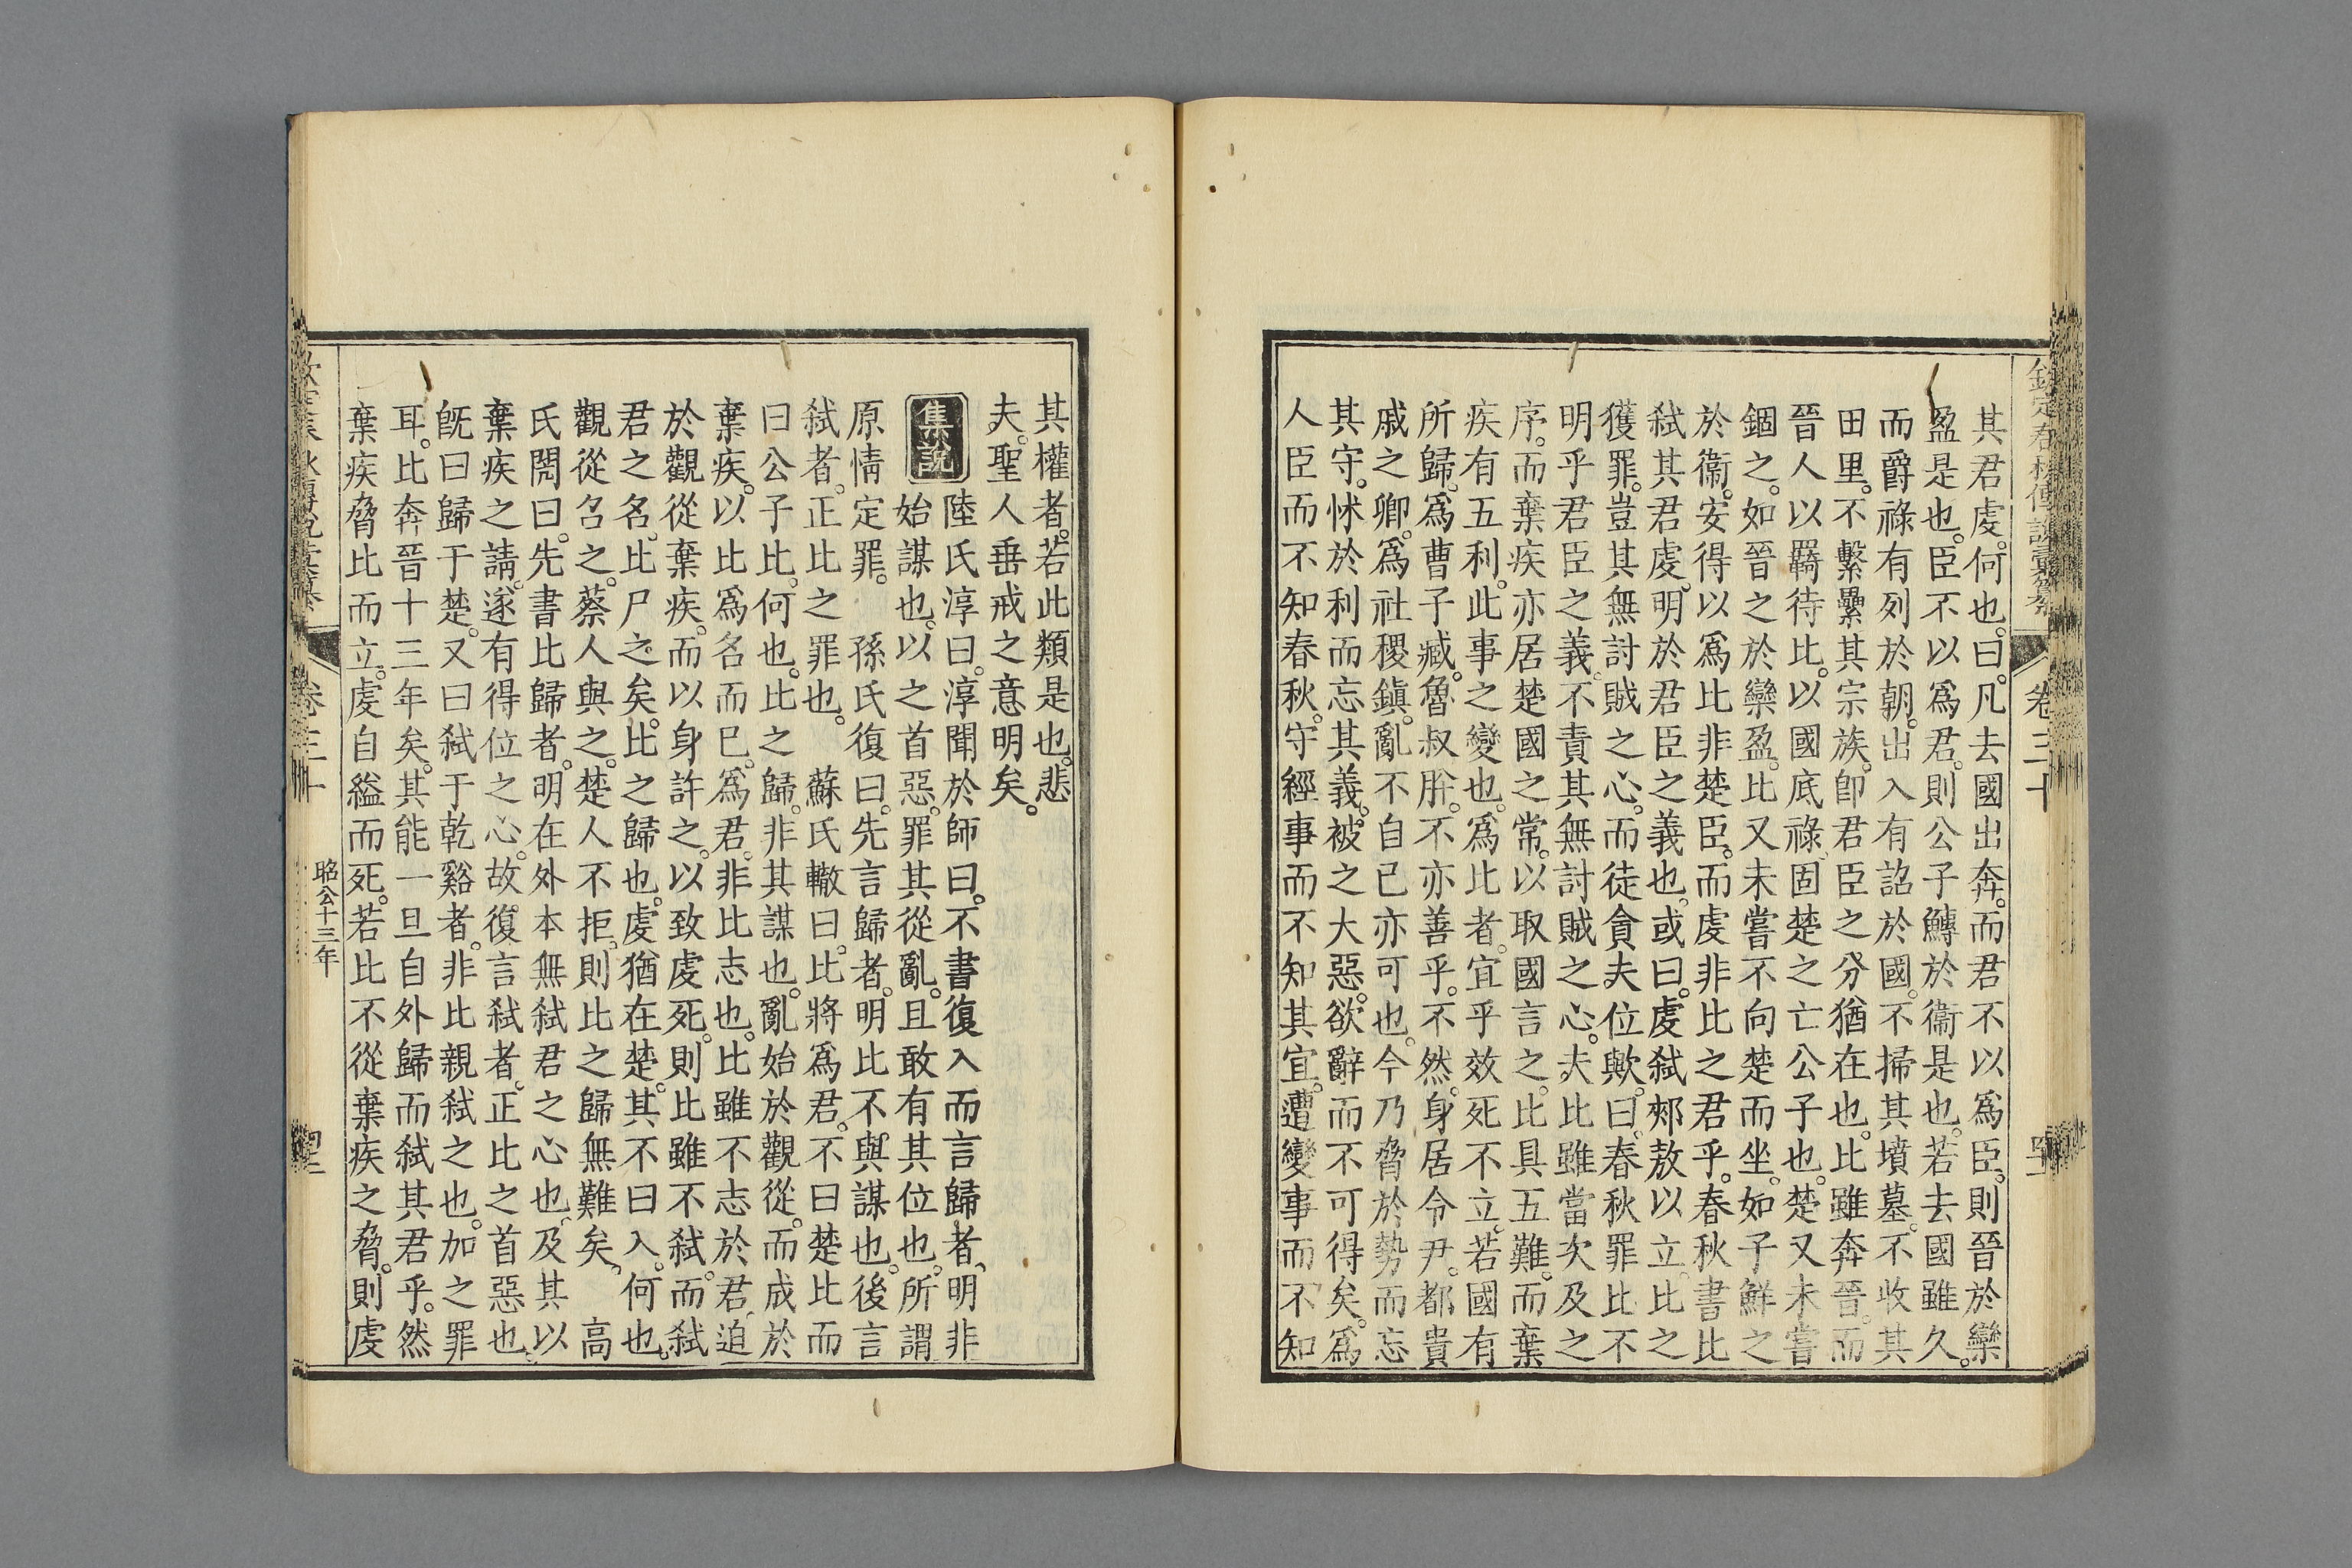 欽定春秋傳說彙纂 卷三十
其君虔。何也。曰。凡去國出奔。而君不以爲臣。則晉於欒
盈是也。臣不以爲君。則公子鱄於衞是也。若去國雖久。
而爵祿有列於朝。出入有詔於國。不掃其墳墓。不收其
田里。不繫纍其宗族。卽君臣之分猶在也。比雖奔晉。而
晉人以羇待比。以國底祿。固楚之亡公子也。楚又未嘗
錮之。如晉之於欒盈。比又未嘗不向楚而坐。如子鮮之
於衞。安得以爲比非楚臣。而虔非比之君乎。春秋書比
弑其君虔。明於君臣之義也。或曰。虔弑郟敖以立。比之
獲罪。豈其無討賊之心。而徒貪夫位歟。曰。春秋罪比不
明乎君臣之義。不責其無討賊之心。夫比雖當次及之
序。而棄疾亦居楚國之常。以取國言之。比具五難。而棄
疾有五利。此事之變也。爲比者。宜乎效死不立。若國有
所歸。爲曹子臧。魯叔肸。不亦善乎。不然。身居令尹。都貴
戚之卿。爲社稷鎭。亂不自己亦可也。今乃脅於勢而忘
其守。怵於利而忘其義。被之大惡。欲辭而不可得矣。爲
人臣而不知春秋。守經事而不知其宜。遭變事而不知
其權者。若此類是也。悲
夫。聖人垂戒之意明矣。
集說
陸氏淳曰。淳聞於師曰。不書復入而言歸者、明非
始謀也。以之首惡。罪其從亂。且敢有其位也。所謂
原情定罪。 孫氏復曰。先言歸者。明比不與謀也。後言
弑者。正比之罪也。 蘇氏轍曰。比將爲君。不曰楚比而
曰公子比。何也。比之歸。非其謀也。亂始於觀從。而成於
棄疾。以比爲名而已。爲君。非比志也。比雖不志於君、迫
於觀從棄疾。而以身許之。以致虔死。則比雖不弑。而弑
君之名。比尸之矣。比之歸也。虔猶在楚。其不曰入。何也。
觀從召之。蔡人與之。楚人不拒。則比之歸無難矣、 高
氏閌曰。先書比歸者。明在外本無弑君之心也、及其以
棄疾之請。遂有得位之心。故復言弑者。正比之首惡也。
旣曰歸于楚。又曰弑于乾谿者。非比親弑之也。加之罪
耳。比奔晉十三年矣。其能一旦自外歸而弑其君乎。然
棄疾脅比而立。虔自縊而死。若比不從棄疾之脅。則虔
昭公十三年